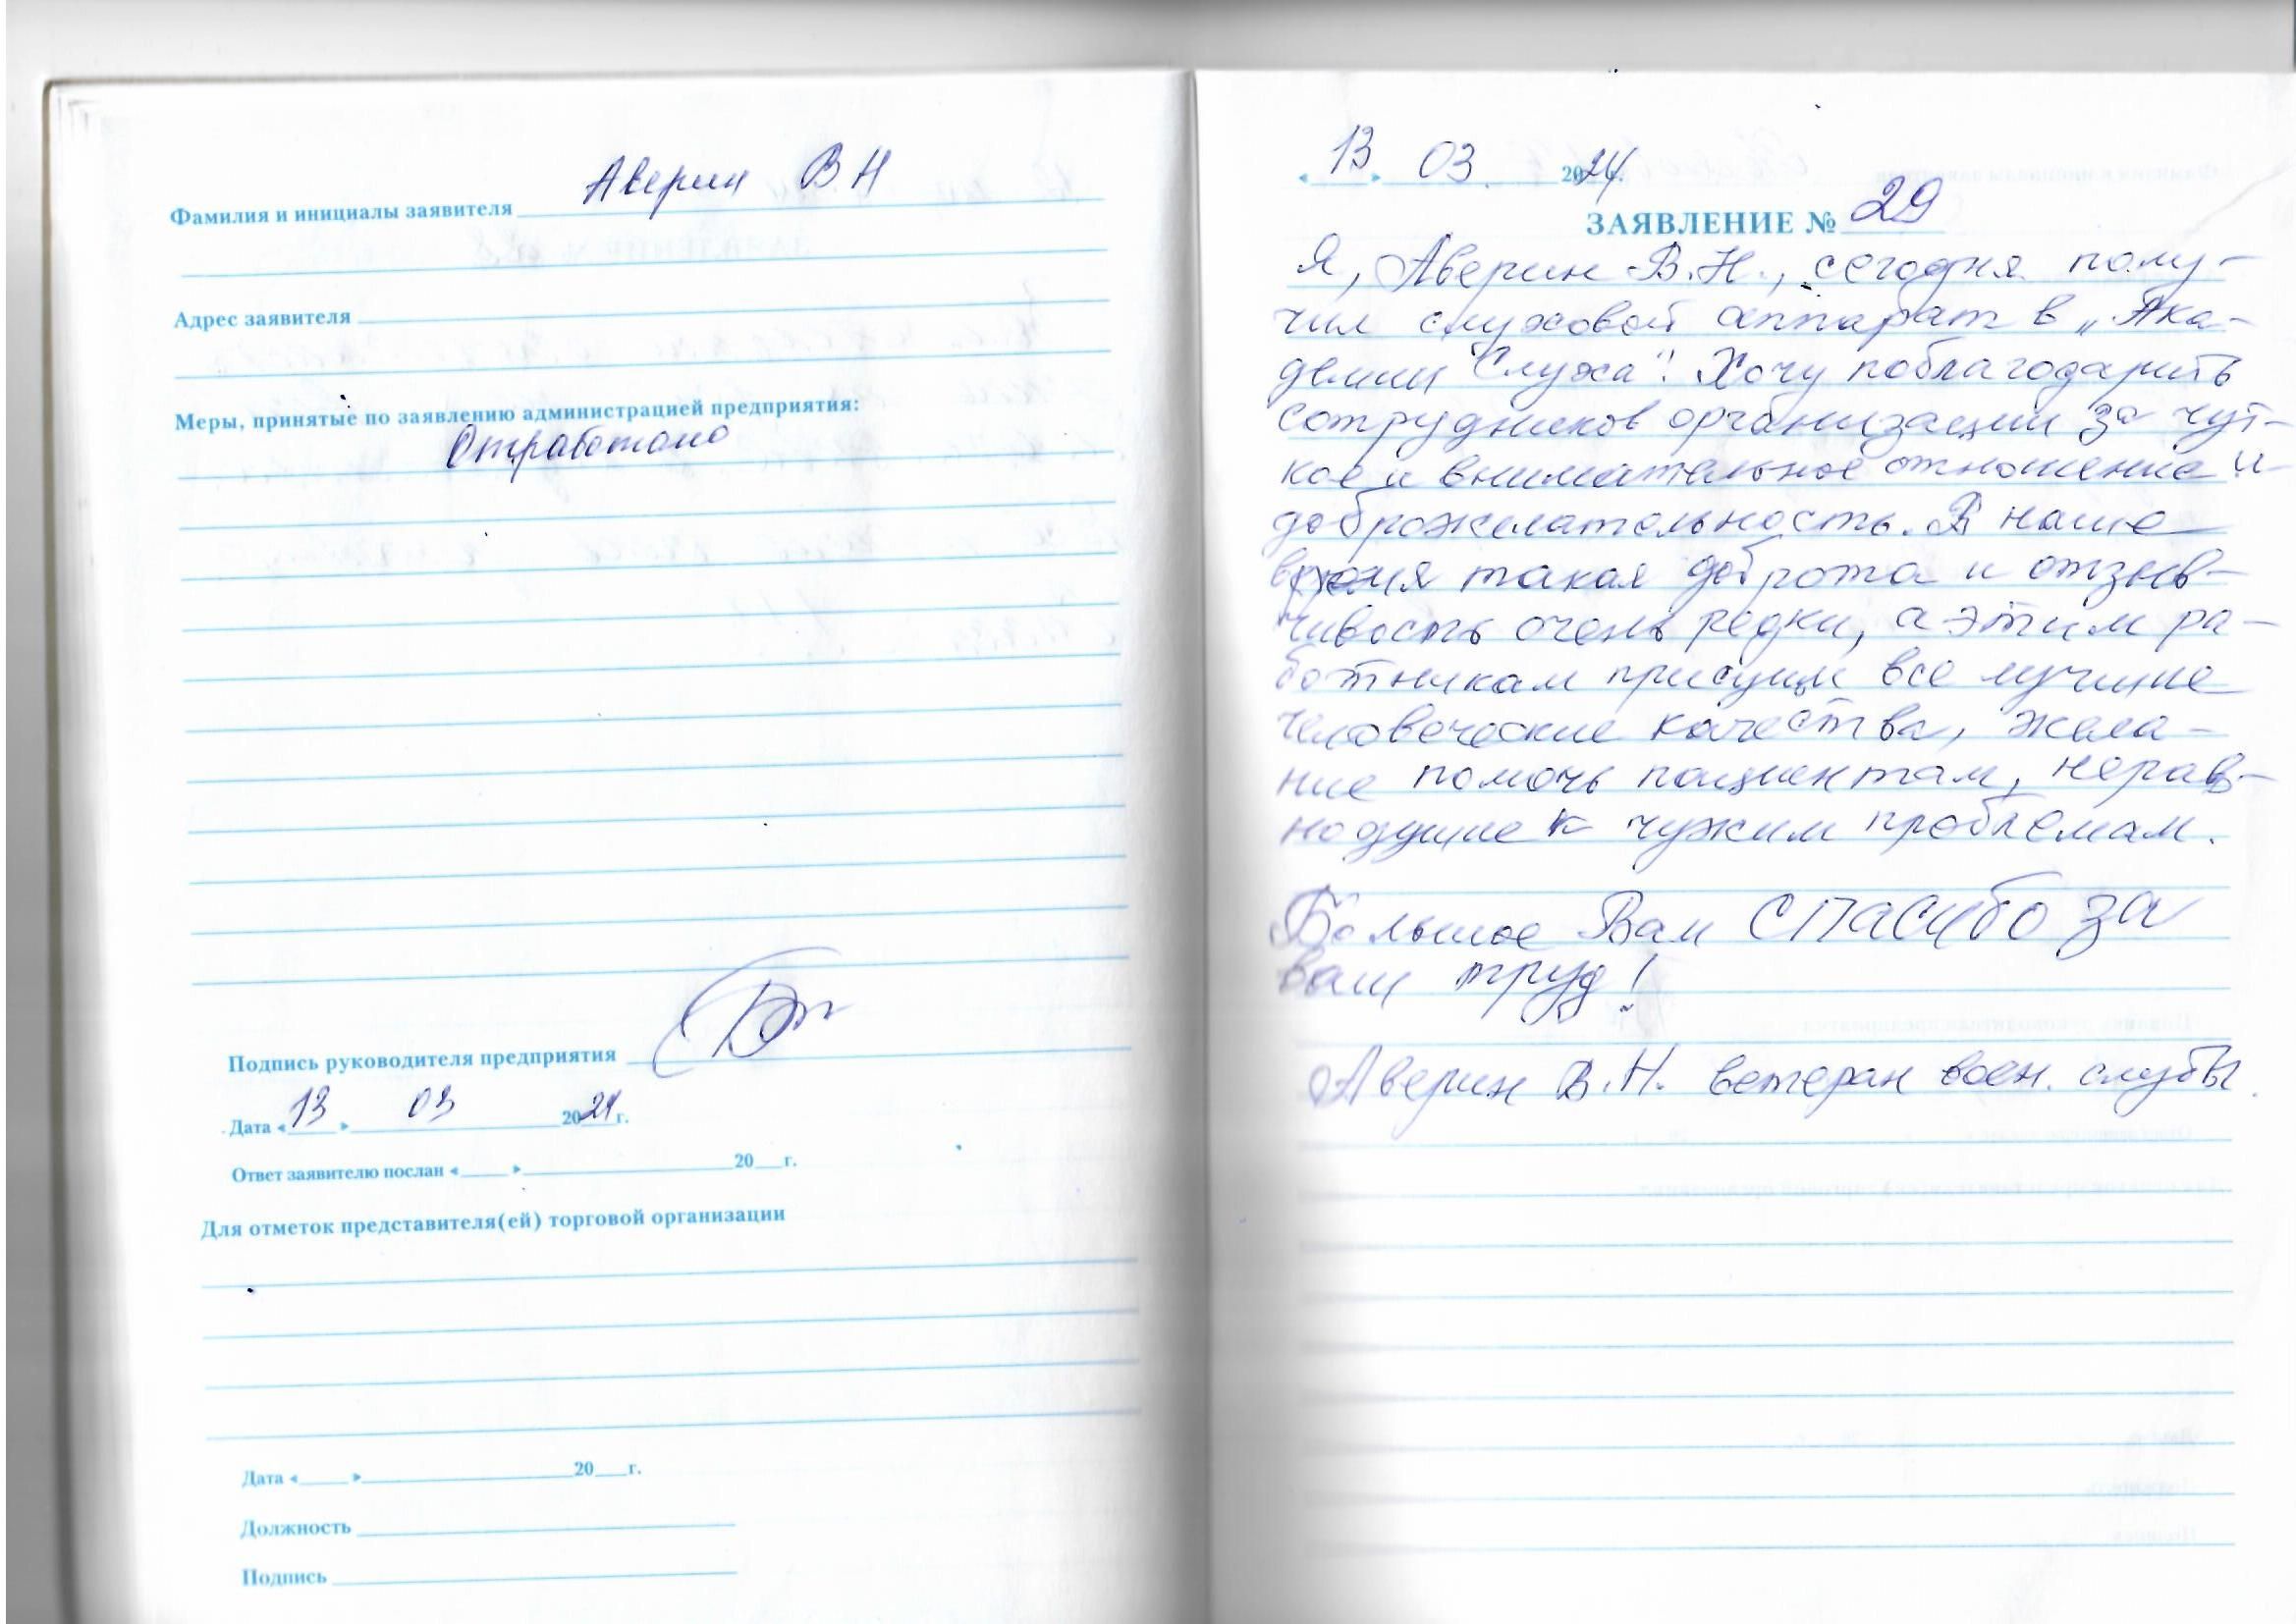 Фамилия и инициалы заявителя Аверин В Н
Адрес заявителя
Меры, принятые по заявлению администрацией предприятия:
Отработано
Подпись руководителя предприятия
Дата «13» 03 2024г.
Ответ заявителю послан « » 20 г.
Для отметок представителя(ей) торговой организации
Дата « » 20 г.
Должность
Подпись
«13» 03. 2024г.
ЗАЯВЛЕНИЕ № 29
Я, Аверин В.Н., сегодня полу-
чил слуховой аппарат в „Ака-
демии Слуха". Хочу поблагодарить
сотрудников организации за чут-
кое и внимательное отношение и
доброжелательность. В наше
время такая доброта и отзыв-
чивость очень редки, а этим ра-
ботникам присущи все лучшие
человеческие качества, жела-
ние помочь пациентам, нерав-
нодушие к чужим проблемам.
Большое Вам СПАСИБО за
ваш труд!
Аверин В.Н. ветеран воен. службы.